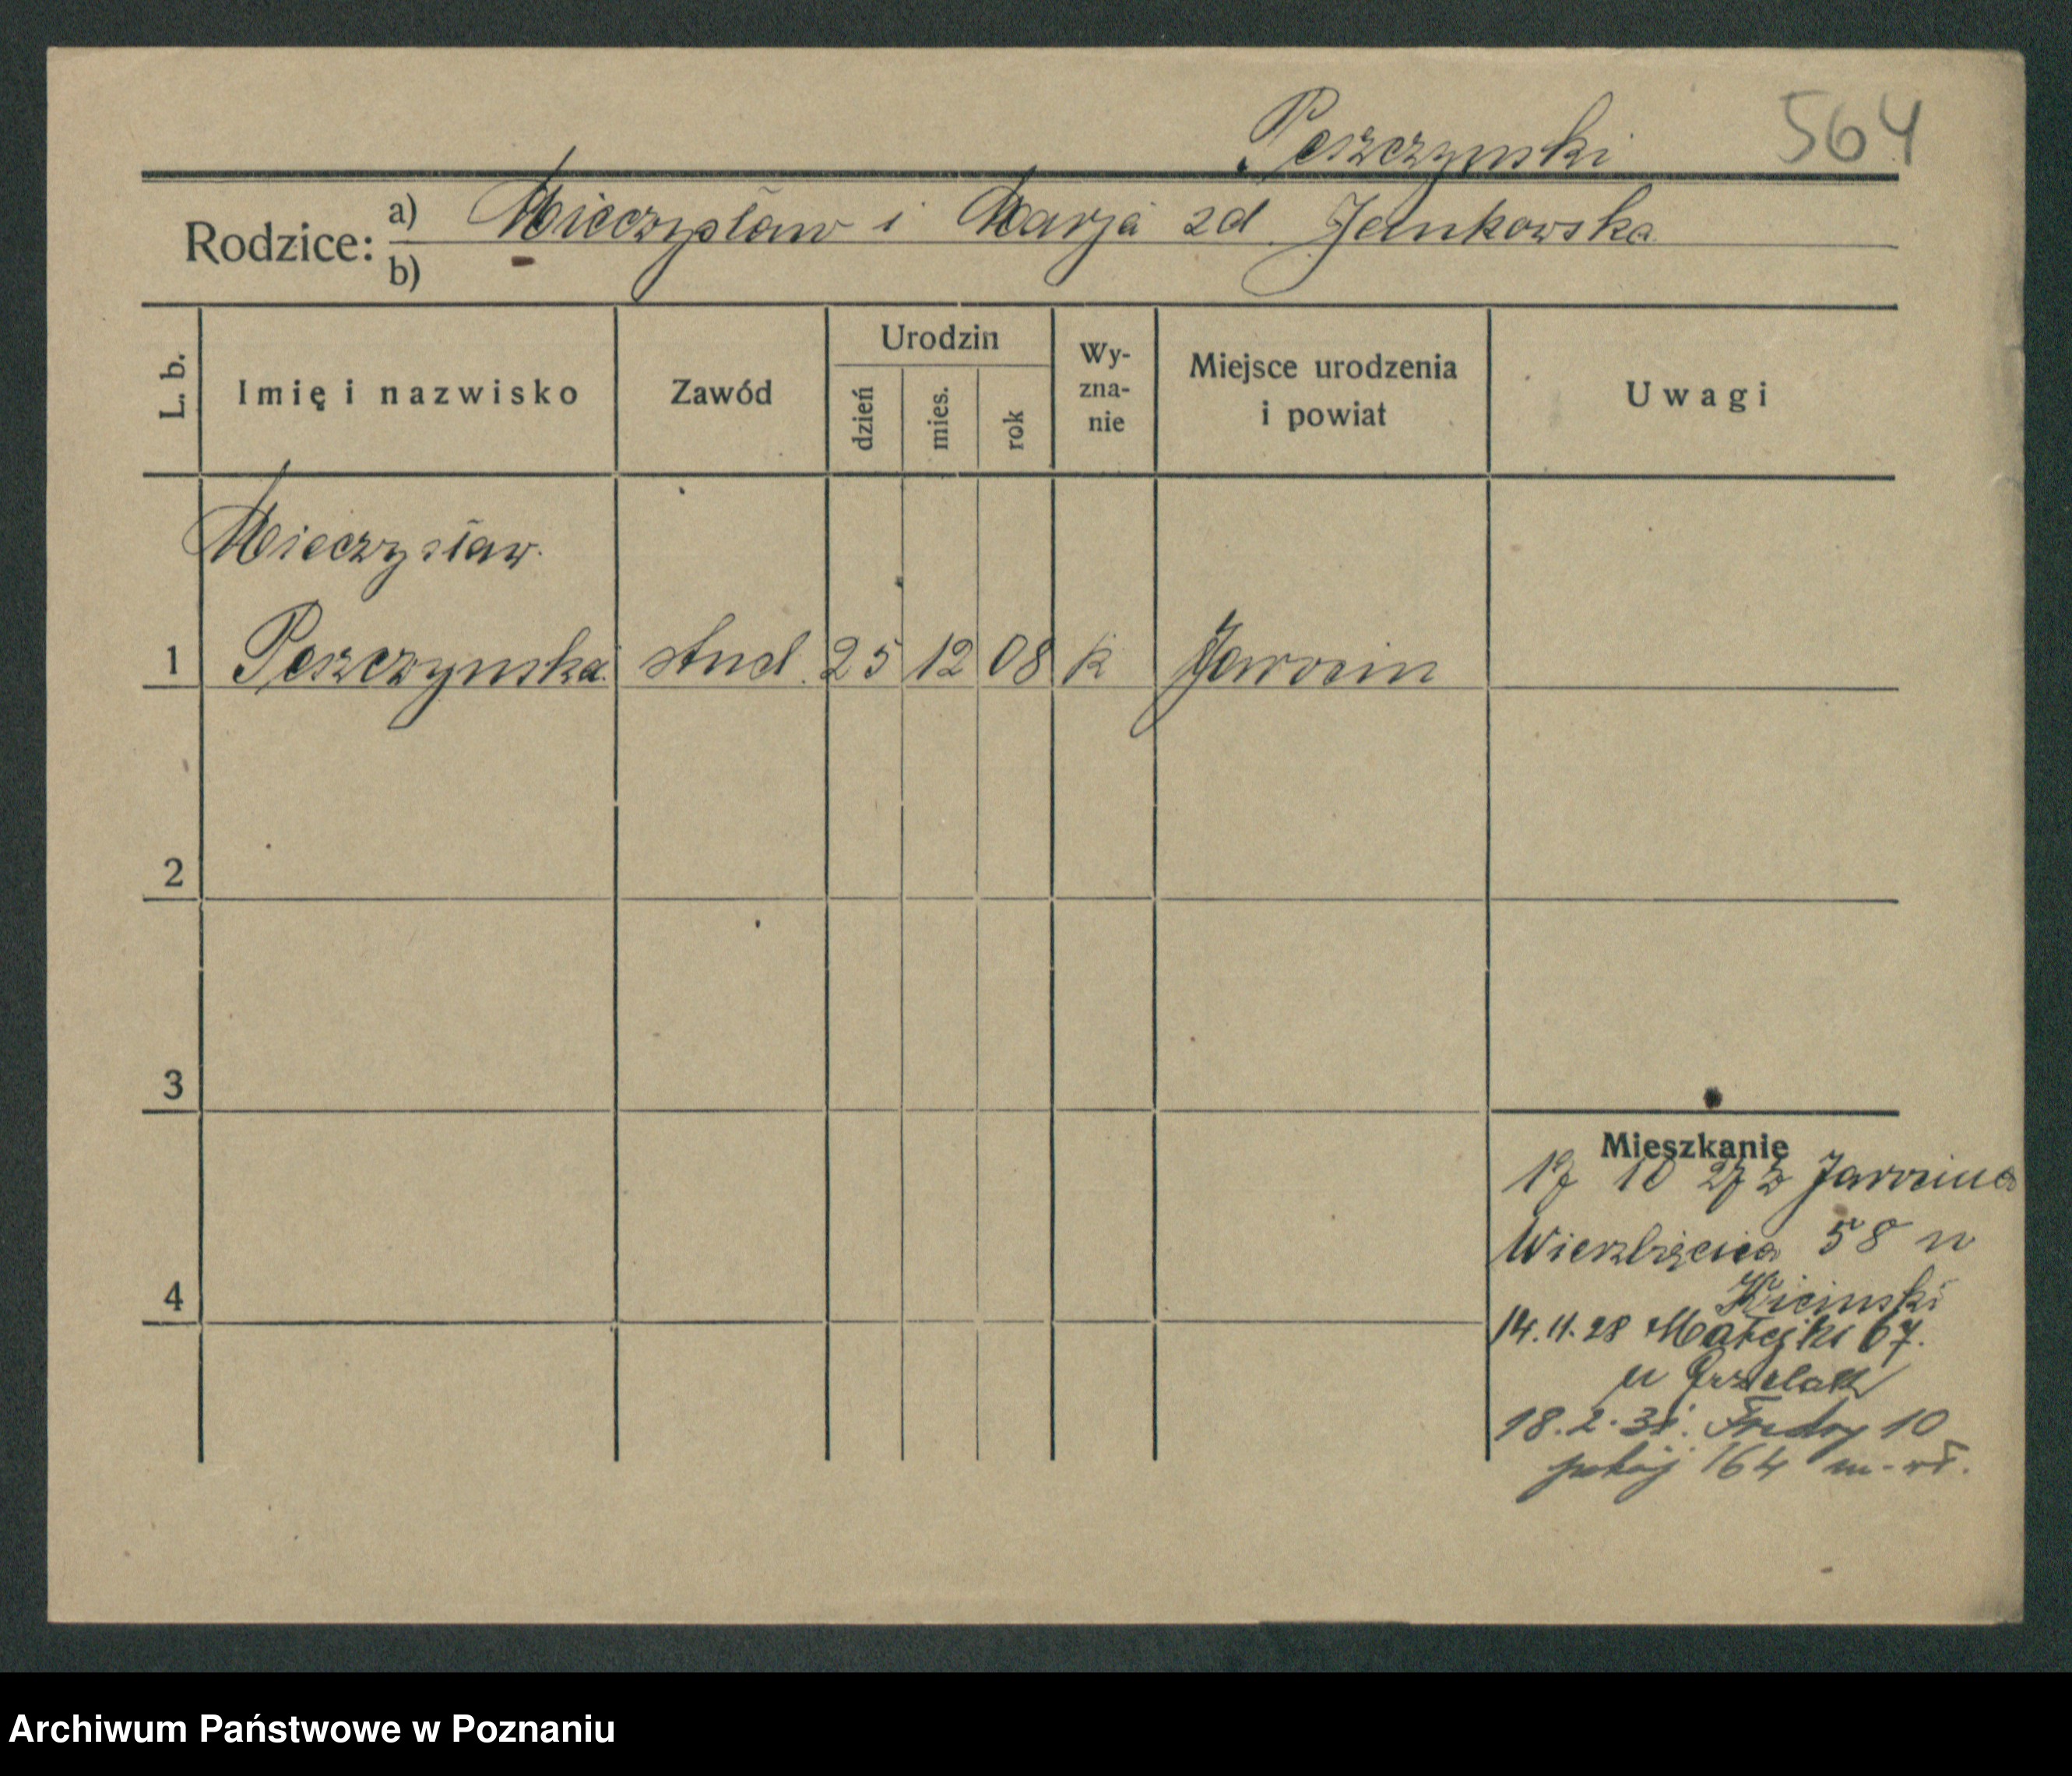 Peszczynski 564
Rodzice: a) Mieczysław i Marja zd Jankowska
b)
L. b. Imię i nazwisko Zawód Urodzin dzień mies. rok Wy-zna-nie Miejsce urodzenia i powiat Uwagi
Mieczysław
1 Peszczynska stud. 25 12 08 k Jarocin
2
3
Mieszkanie
17 10 27 z Jarocina
Wierzbięcice 58 u
4
Kicinski
14.11.28 Matejki 67.
u Grzelak
18.2.31. Fredry 10
pokój 164
Archiwum Państwowe w Poznaniu